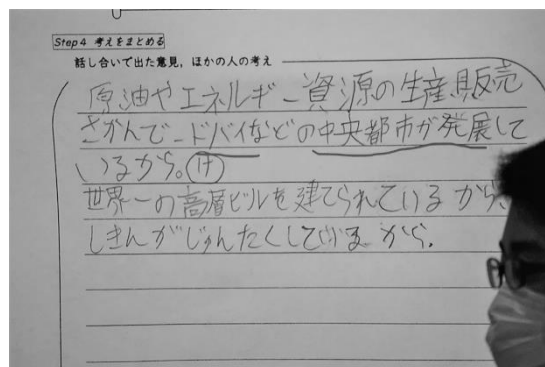 Step4 考えをまとめる
話し合いで出た意見，ほかの人の考え
原油やエネルギー資源の生産販売
さかんで ドバイなどの中央都市が発展して
いるから。け
世界一の高層ビルを建てられているから、
しきんがじゅんたくしているから.